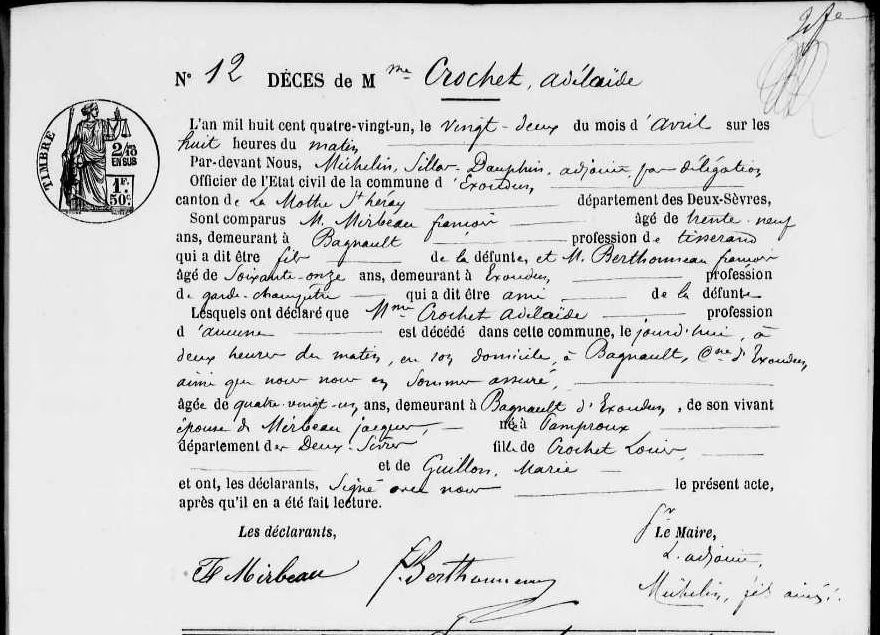 N° 12 DÉCES de Mme Crochet, adélaïde
TIMBRE
2/10 EN SUS
1F. 50c
L'an mil huit cent quatre-vingt-un, le vingt-deux du mois d'avril sur les
huit heures du matin
Par-devant Nous, Michelin, Dauphin, adjoint, par délégation
Officier de l'Etat civil de la commune d'Exoudun,
canton de La Mothe St héray département des Deux-Sèvres,
Sont comparus M. Mirbeau françois âgé de trente-neuf
ans, demeurant à Bagnault profession de tisserand
qui a dit être fils de la défunte, et M. Berthonneau françois
âgé de Soixante-onze ans, demeurant à Exoudun, profession
de garde-champêtre qui a dit être ami de la défunte
Lesquels ont déclaré que Mme Crochet Adélaïde profession
d'aucune est décédé dans cette commune, le jourd'hui, à
deux heures du matin, en son domicile, à Bagnault, Cne d'Exoudun,
ainsi que nous nous en sommes assuré,
âgée de quatre-vingt-un ans, demeurant à Bagnault d'Exoudun, de son vivant
épouse de Mirbeau jacques, née à Pamproux
département des Deux-Sèvres fille de Crochet Louis,
et de Guillon, Marie
et ont, les déclarants, Signé avec nous le présent acte,
après qu'il en a été fait lecture.
Les déclarants, Pr Le Maire,
L'adjoint,
F Mirbeau f. Berthonneau Michelin, fils ainé.